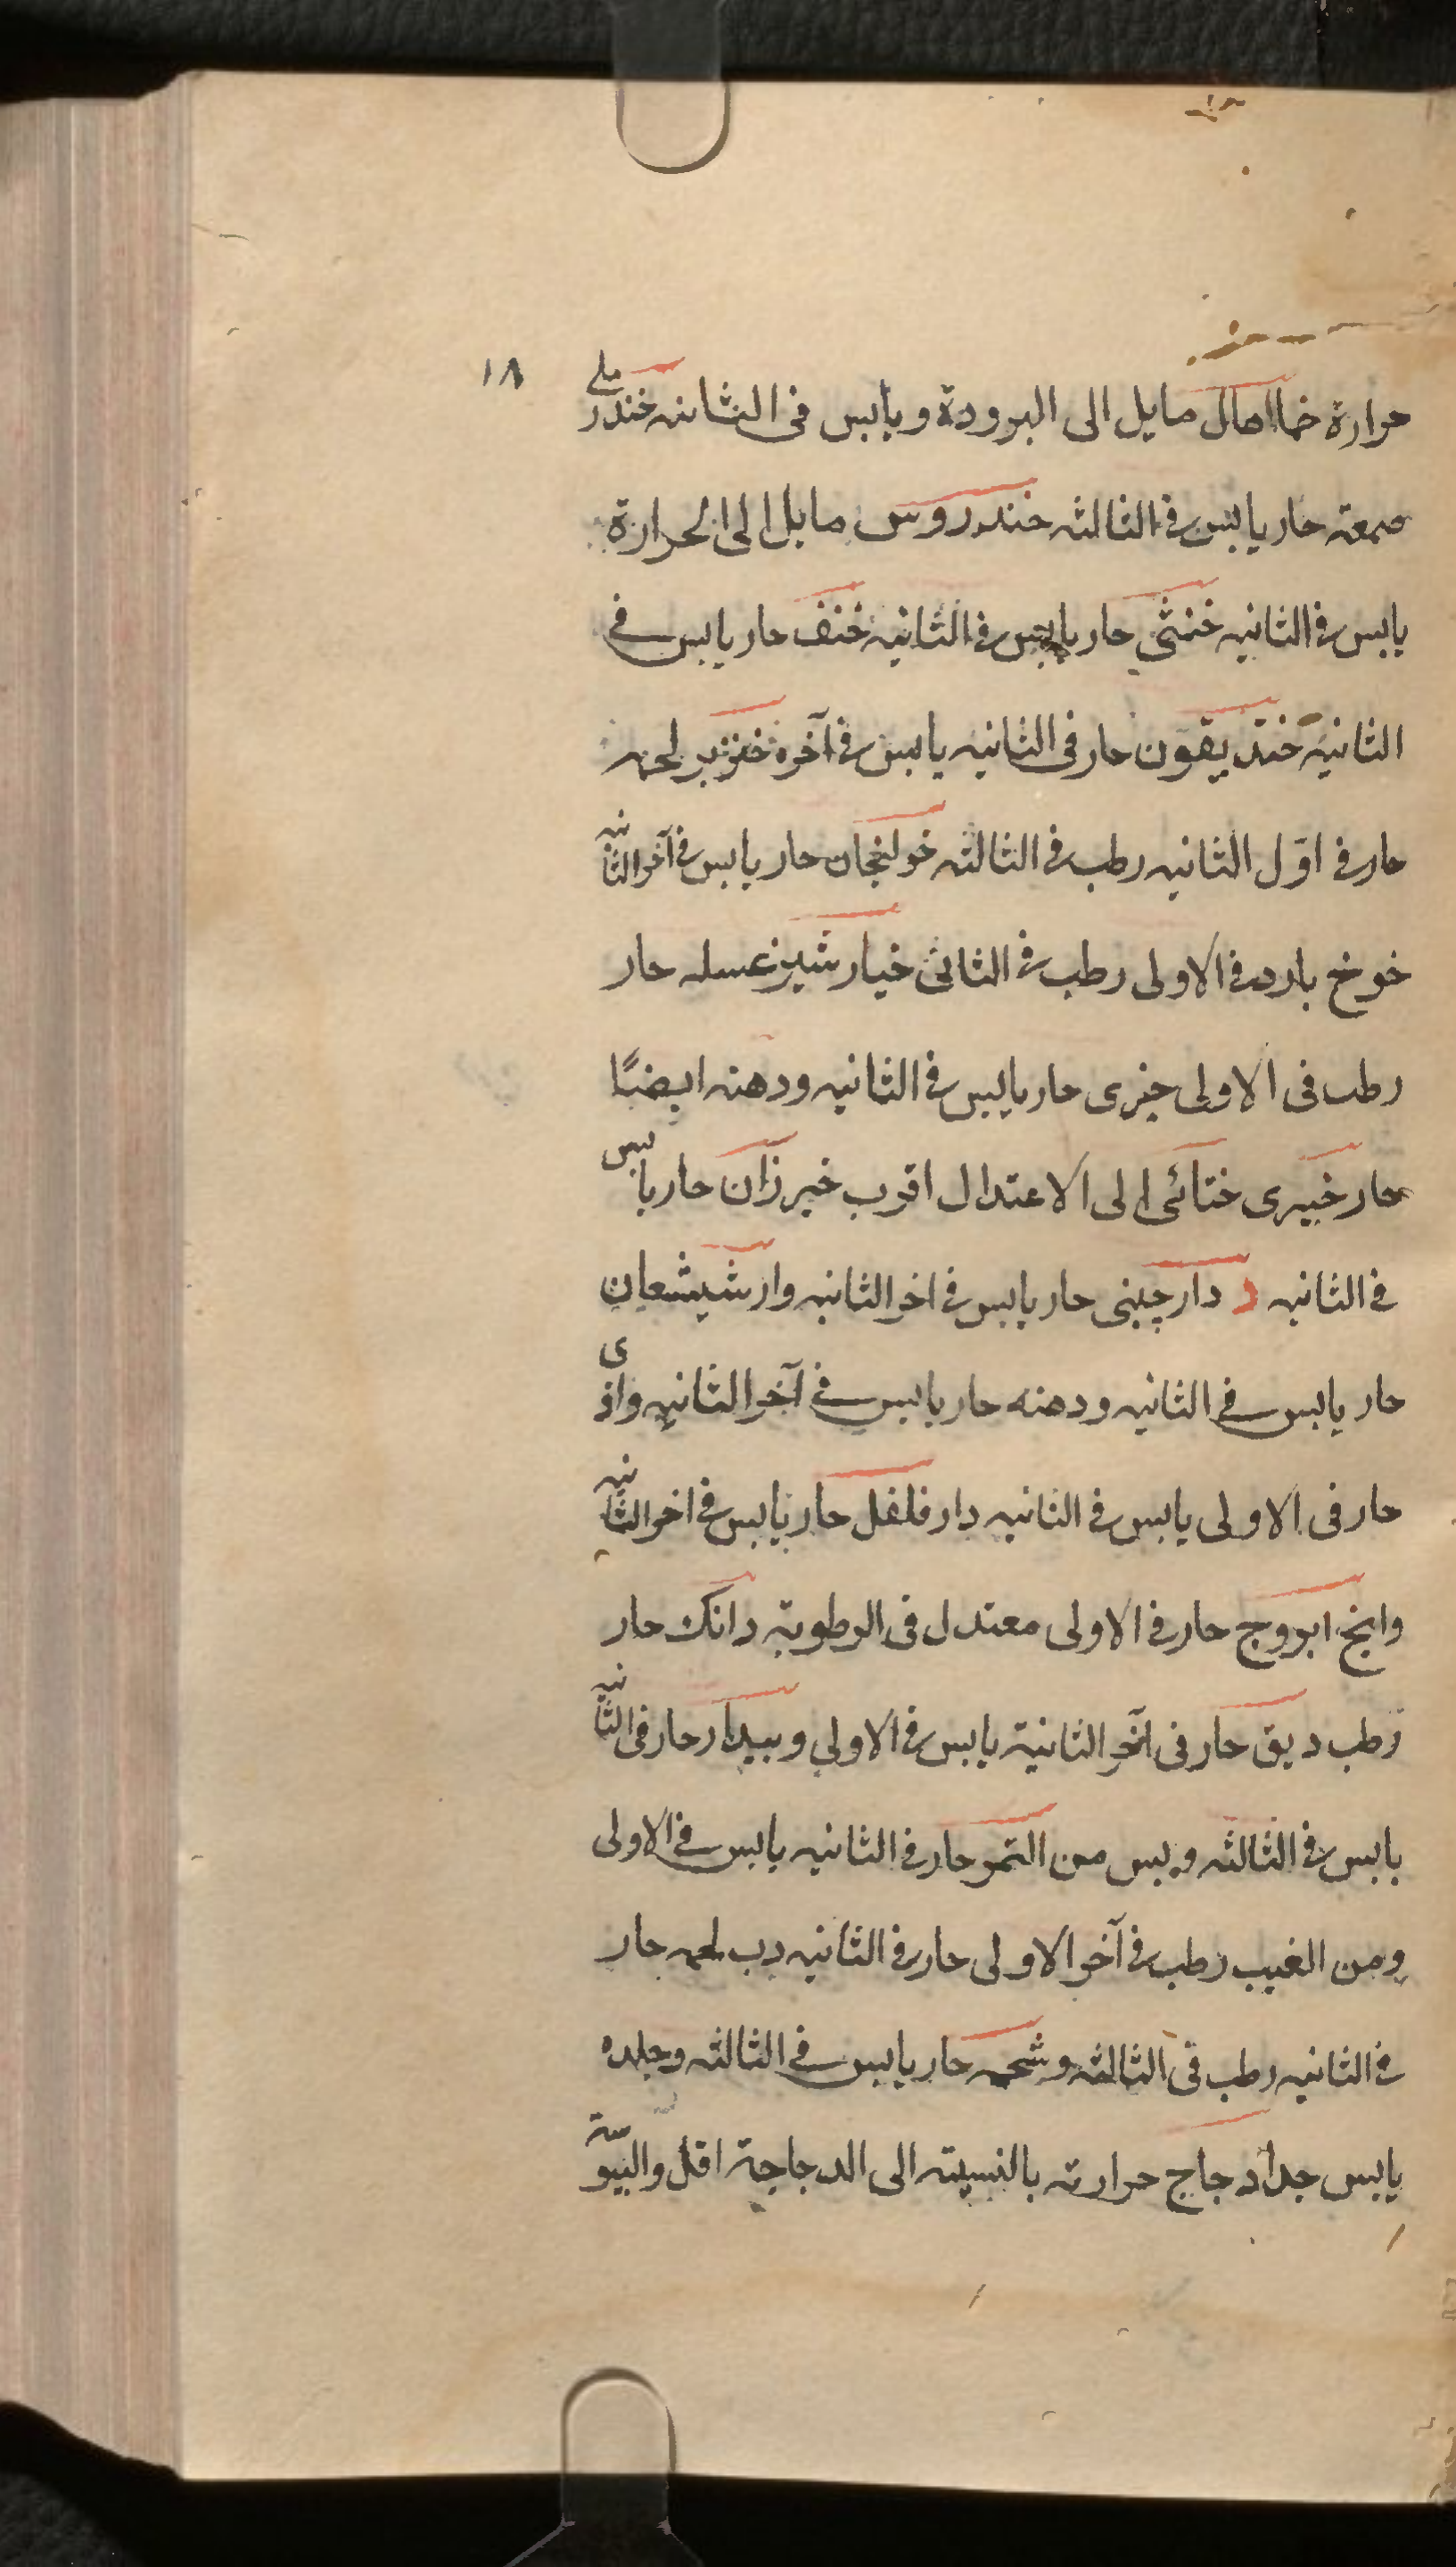 ١٨
حرارة خمااهان مايل الى البرودة ويابس فى الثانيه خندريلى
صمعته حار يابس فى الثالثه خندروس مايل الى الحرارة
يابس فى الثانيه خنثى حار يابس فى الثانيه خنف حار يابس فى
الثانيه خنديقون حار فى الثانيه يابس فى آخره خنزير لحمه
حار فى اوّل الثانيه رطب فى الثالثه خولنجان حار يابس فى آخر الثانيه
خوخ بارد فى الاولى رطب فى الثانى خيار شنبر عسله حار
رطب فى الاولى خيرى حار يابس فى الثانيه ودهنه ايضًا
حار خيرى ختائى الى الاعتدال اقرب خيرزان حار يابس
فى الثانيه د دارچينى حار يابس فى اخر الثانيه وارشيشعان
حار يابس فى الثانيه ودهنه حار يابس فى آخر الثانيه واذى
حار فى الاولى يابس فى الثانيه دار فلفل حار يابس فى اخر الثانيه
وانج ابروج حار فى الاولى معتدل فى الرطوبة دانك حار
رطب ديق حار فى آخر الثانية يابس فى الاولى وبيدار حار فى الثانيه
يابس فى الثالثه وبس من التمر حار فى الثانيه يابس فى الاولى
ومن الغيب رطب فى آخر الاولى حار فى الثانيه دب لحمه حار
فى الثانيه رطب فى الثالثه وشحمه حار يابس فى الثالثه وجلده
يابس جدا دجاج حرارته بالنسبته الى الدجاجة اقل واليبوسة